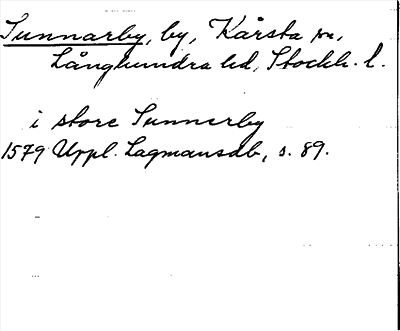 Sunnarby, by, Kårsta sn,
Långhundra hd, Stockh. l.
i store Sunnerby
1579 Uppl. Lagmansdb, s. 89.